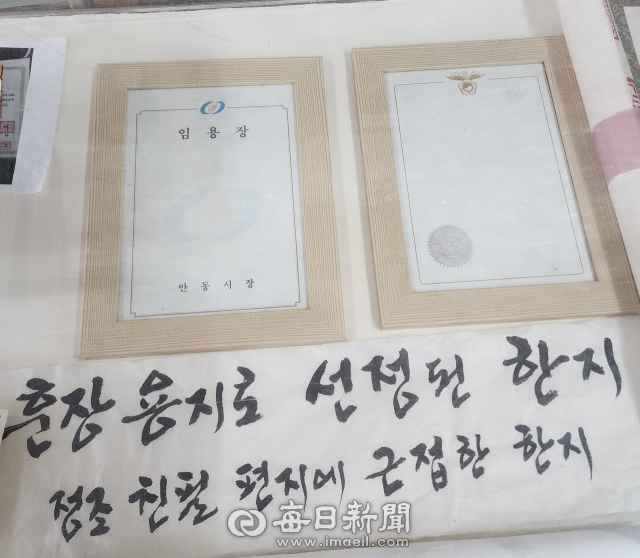 임용장
안동시장
훈장 용지로 선정된 한지
정조 친필 편지에 근접한 한지
每日新聞
www.imaeil.com